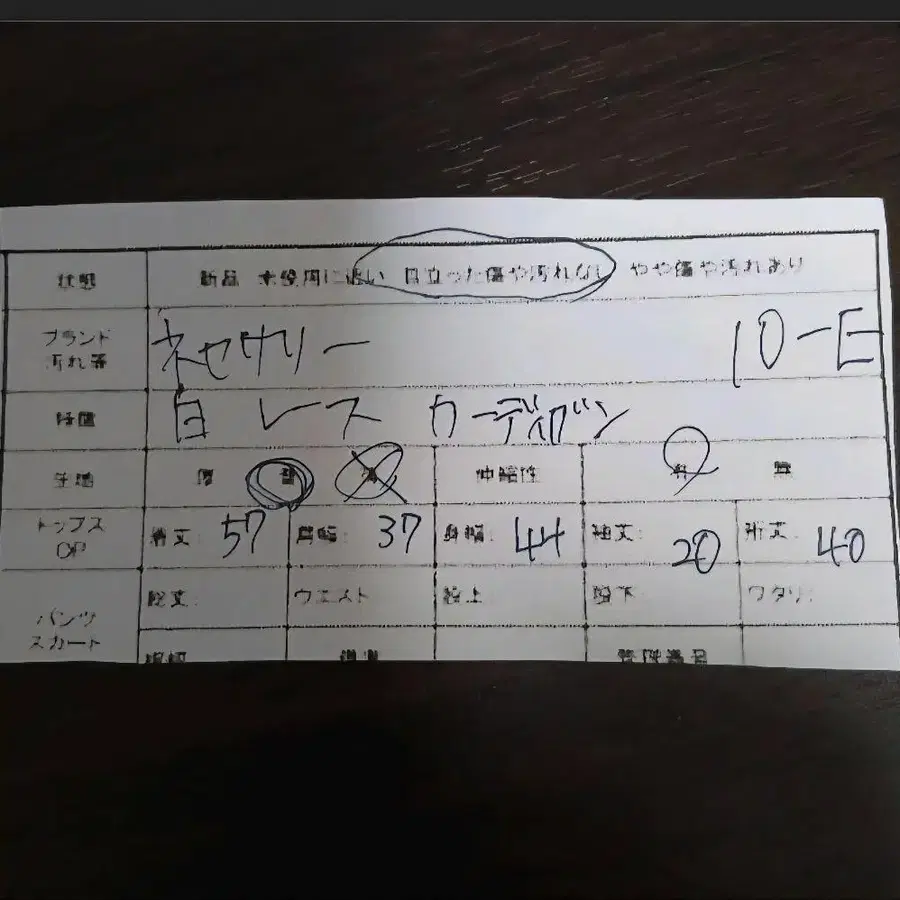 状態 新品 未使用に近い 目立った傷や汚れなし やや傷や汚れあり
ブランド 汚れ等 ネセサリー 10-E
特徴 白 レース カーディガン
生地 厚 伸縮性 有 無
トップス OP 着丈: 57 肩幅: 37 身幅: 44 袖丈: 20 裄丈: 40
パンツ スカート 総丈: ウエスト 股上 股下: ワタリ:
裾幅 管理番号